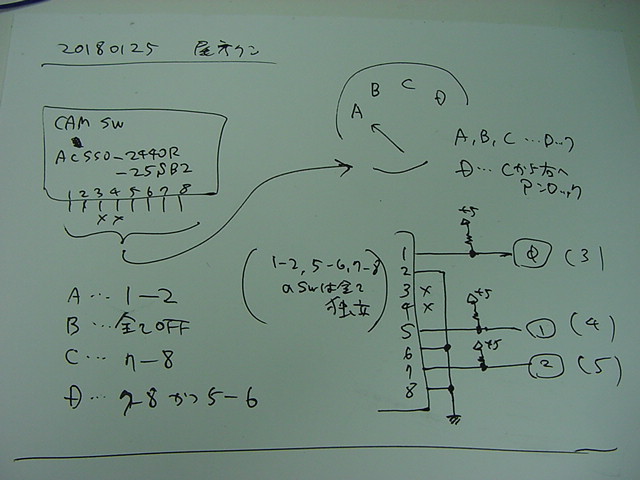 20180125
CAM SW
ACSSO-2440R
-25SB2
1 2 3 4 5 6 7 8
x x
A B C D
A, B, C …ロック
D … Cから右へ
1-2, 5-6, 7-8
のSWは全て
独立
1
2
3 x
4 x
5
6
7
8
+5
0 (3)
+5
1 (4)
+5
2 (5)
A … 1-2
B … 全てOFF
C … 7-8
D … 7-8 かつ 5-6